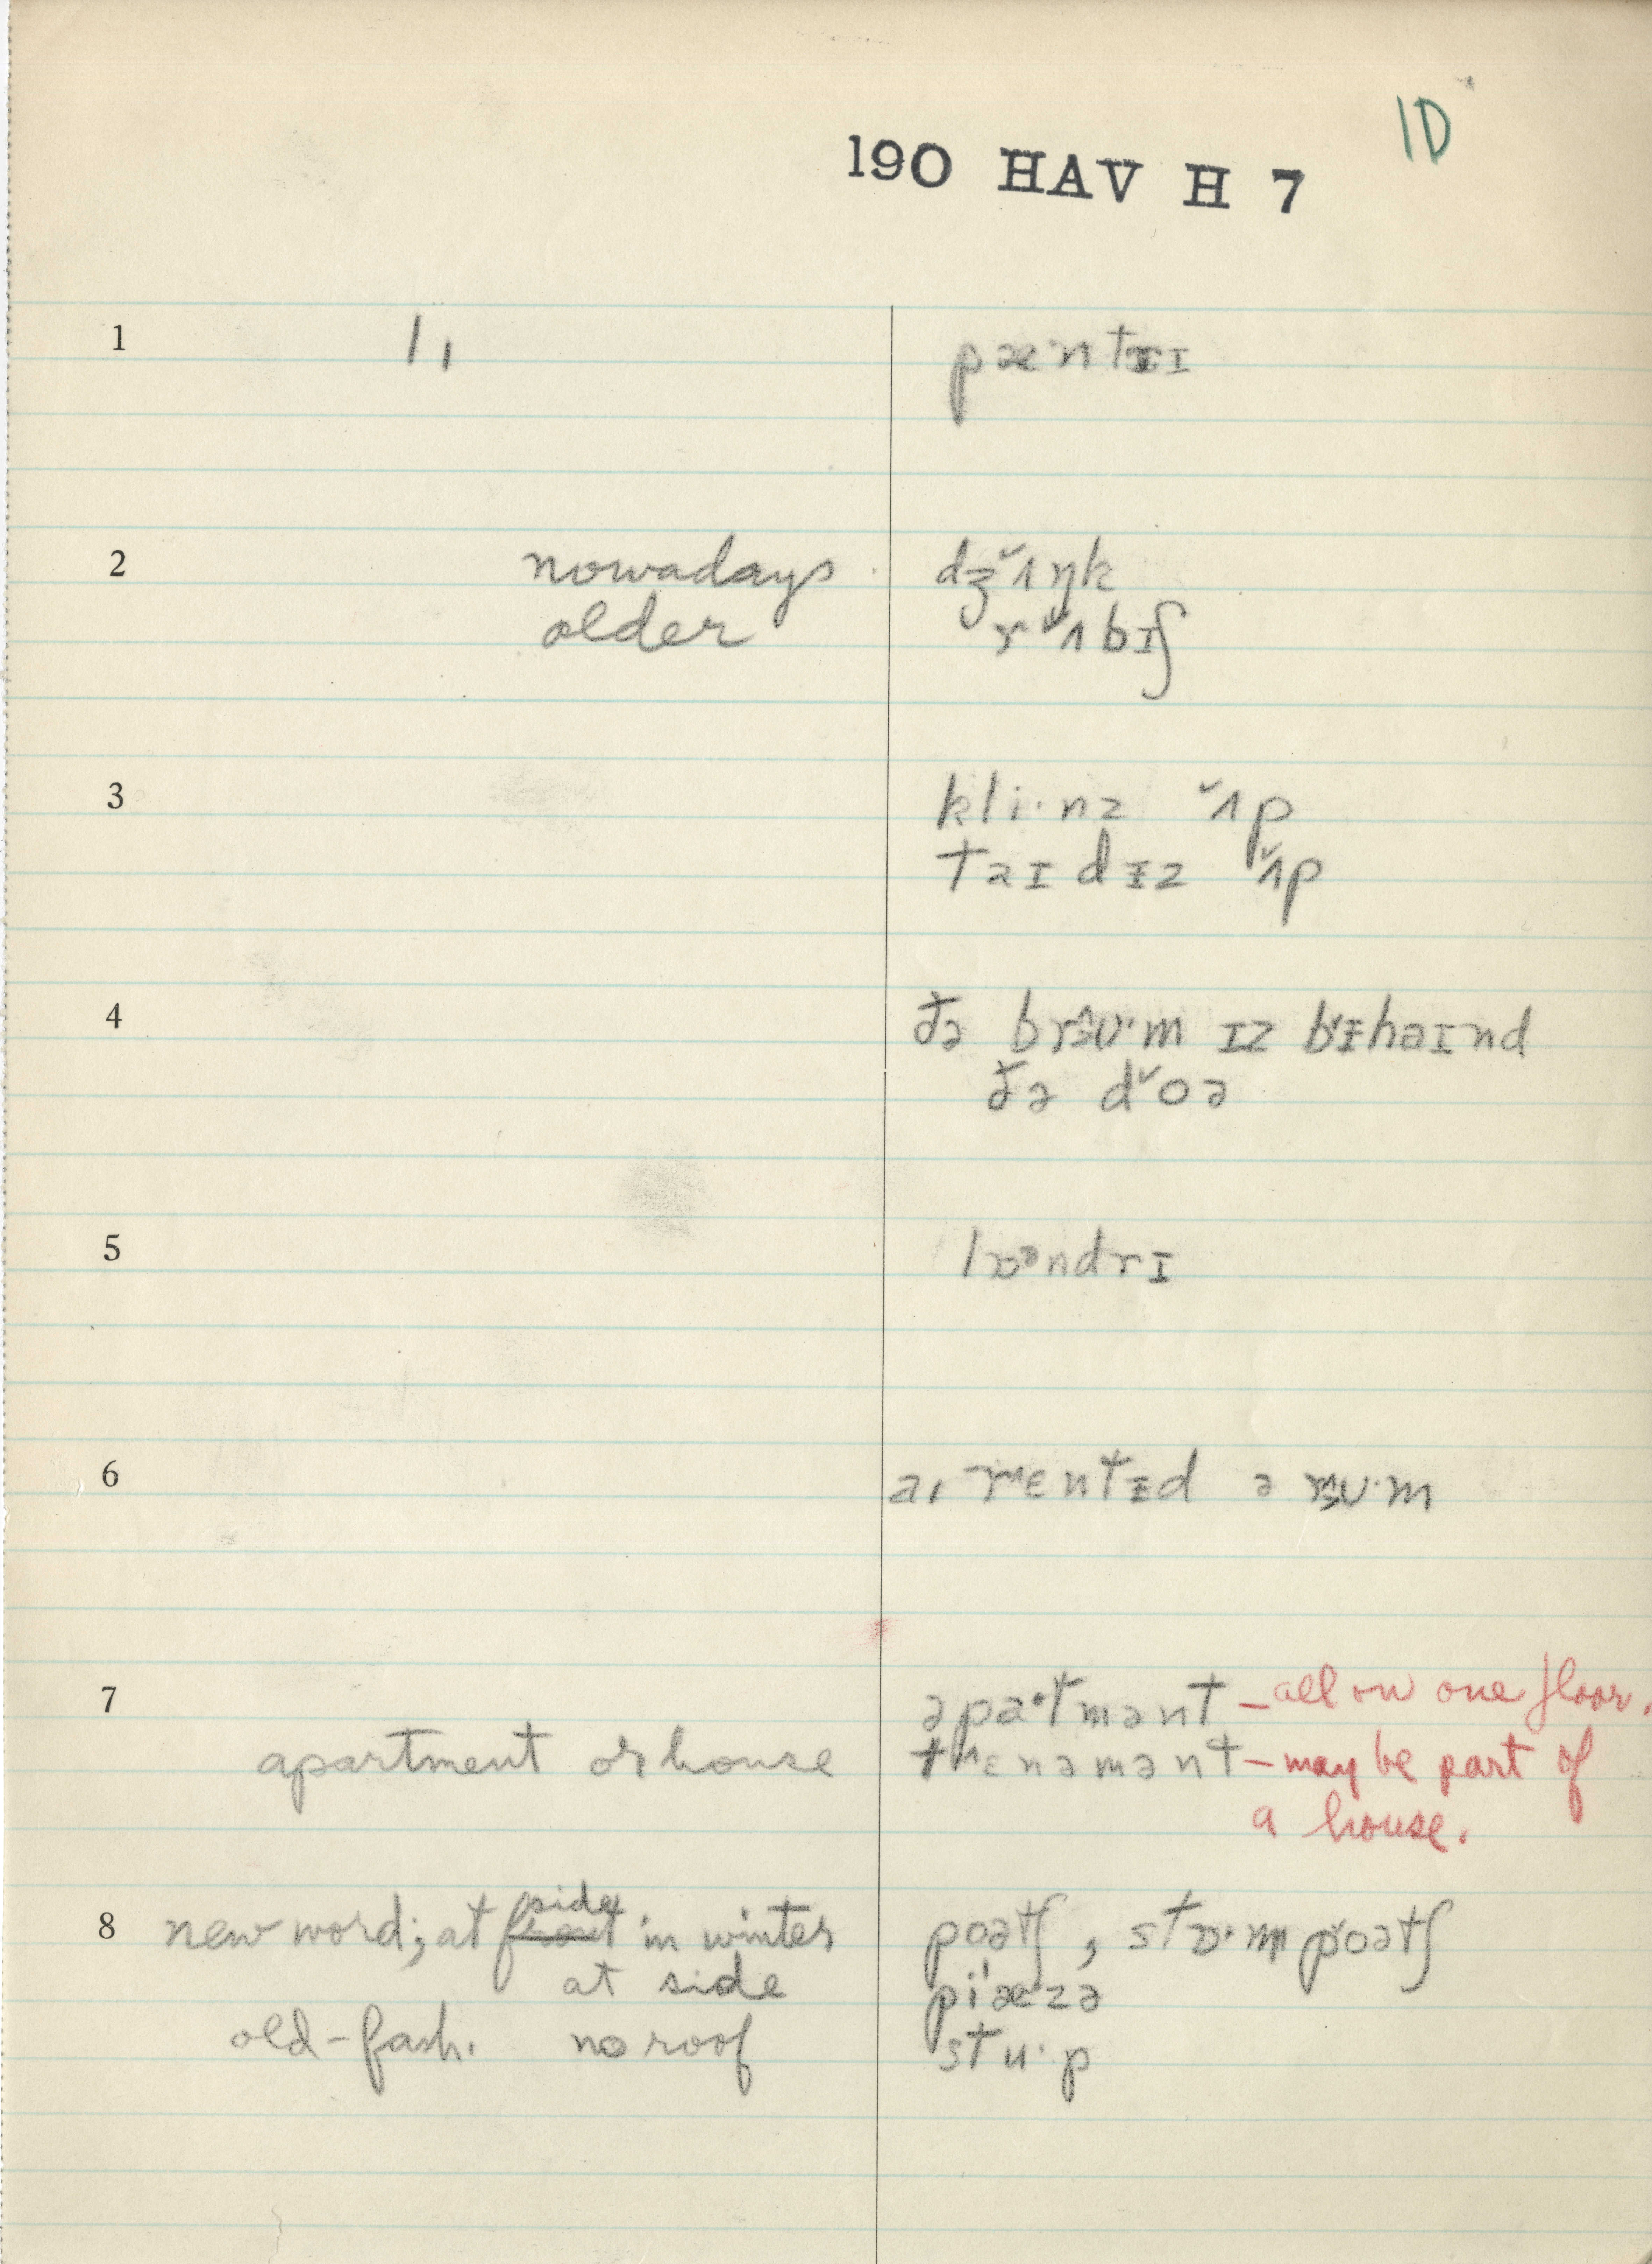 1D
190 HAV H 7
1 1, pæ·ntrɪ
2 nowadays dʒˇʌŋk
older rˇʌbɪʃ
3 kli·nz ˇʌp
taɪdɪz ˇʌp
4 ðə brʊ·m ɪz bɪhaɪnd
ðə dˇoə
5 lɒᵊndrɪ
6 a, rɛntɪd ə rʊ·m
7 əpa·tmənt – all on one floor.
apartment or house tʰɛnəmənt – may be part of
a house.
8 new word; at front side in winter poətʃ, stɒ·mpˇoətʃ
at side piˈæzə
old-fash. no roof stu·p